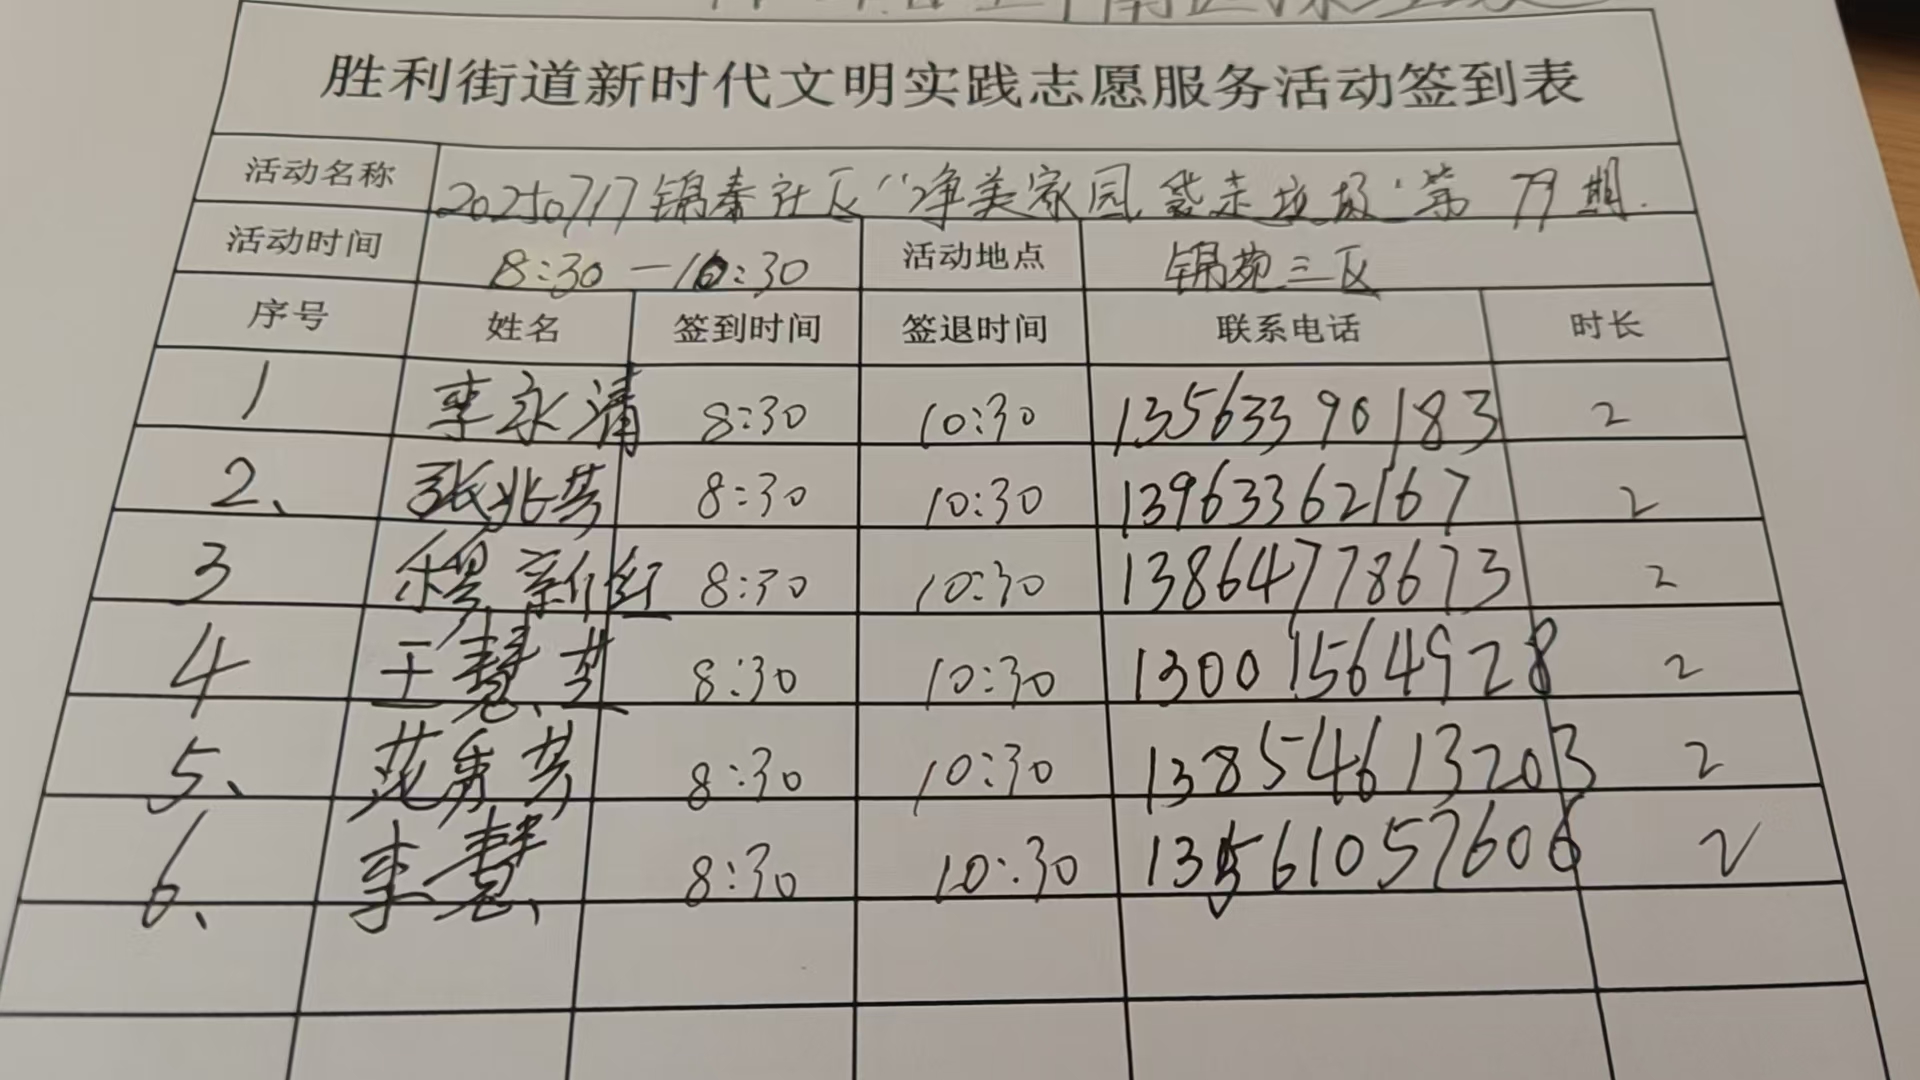 胜利街道新时代文明实践志愿服务活动签到表
活动名称 20250717锦泰社区“净美家园 袋走垃圾”第79期.
活动时间 8:30—10:30 活动地点 锦苑三区
序号 姓名 签到时间 签退时间 联系电话 时长
1 李永清 8:30 10:30 13563390183 2
2、 张兆芬 8:30 10:30 13963362167 2
3 穆新红 8:30 10:30 13864778673 2
4 王慧芝 8:30 10:30 13001564928 2
5、 范秀芬 8:30 10:30 13854613203 2
6、 李慧 8:30 10:30 13561057606 2